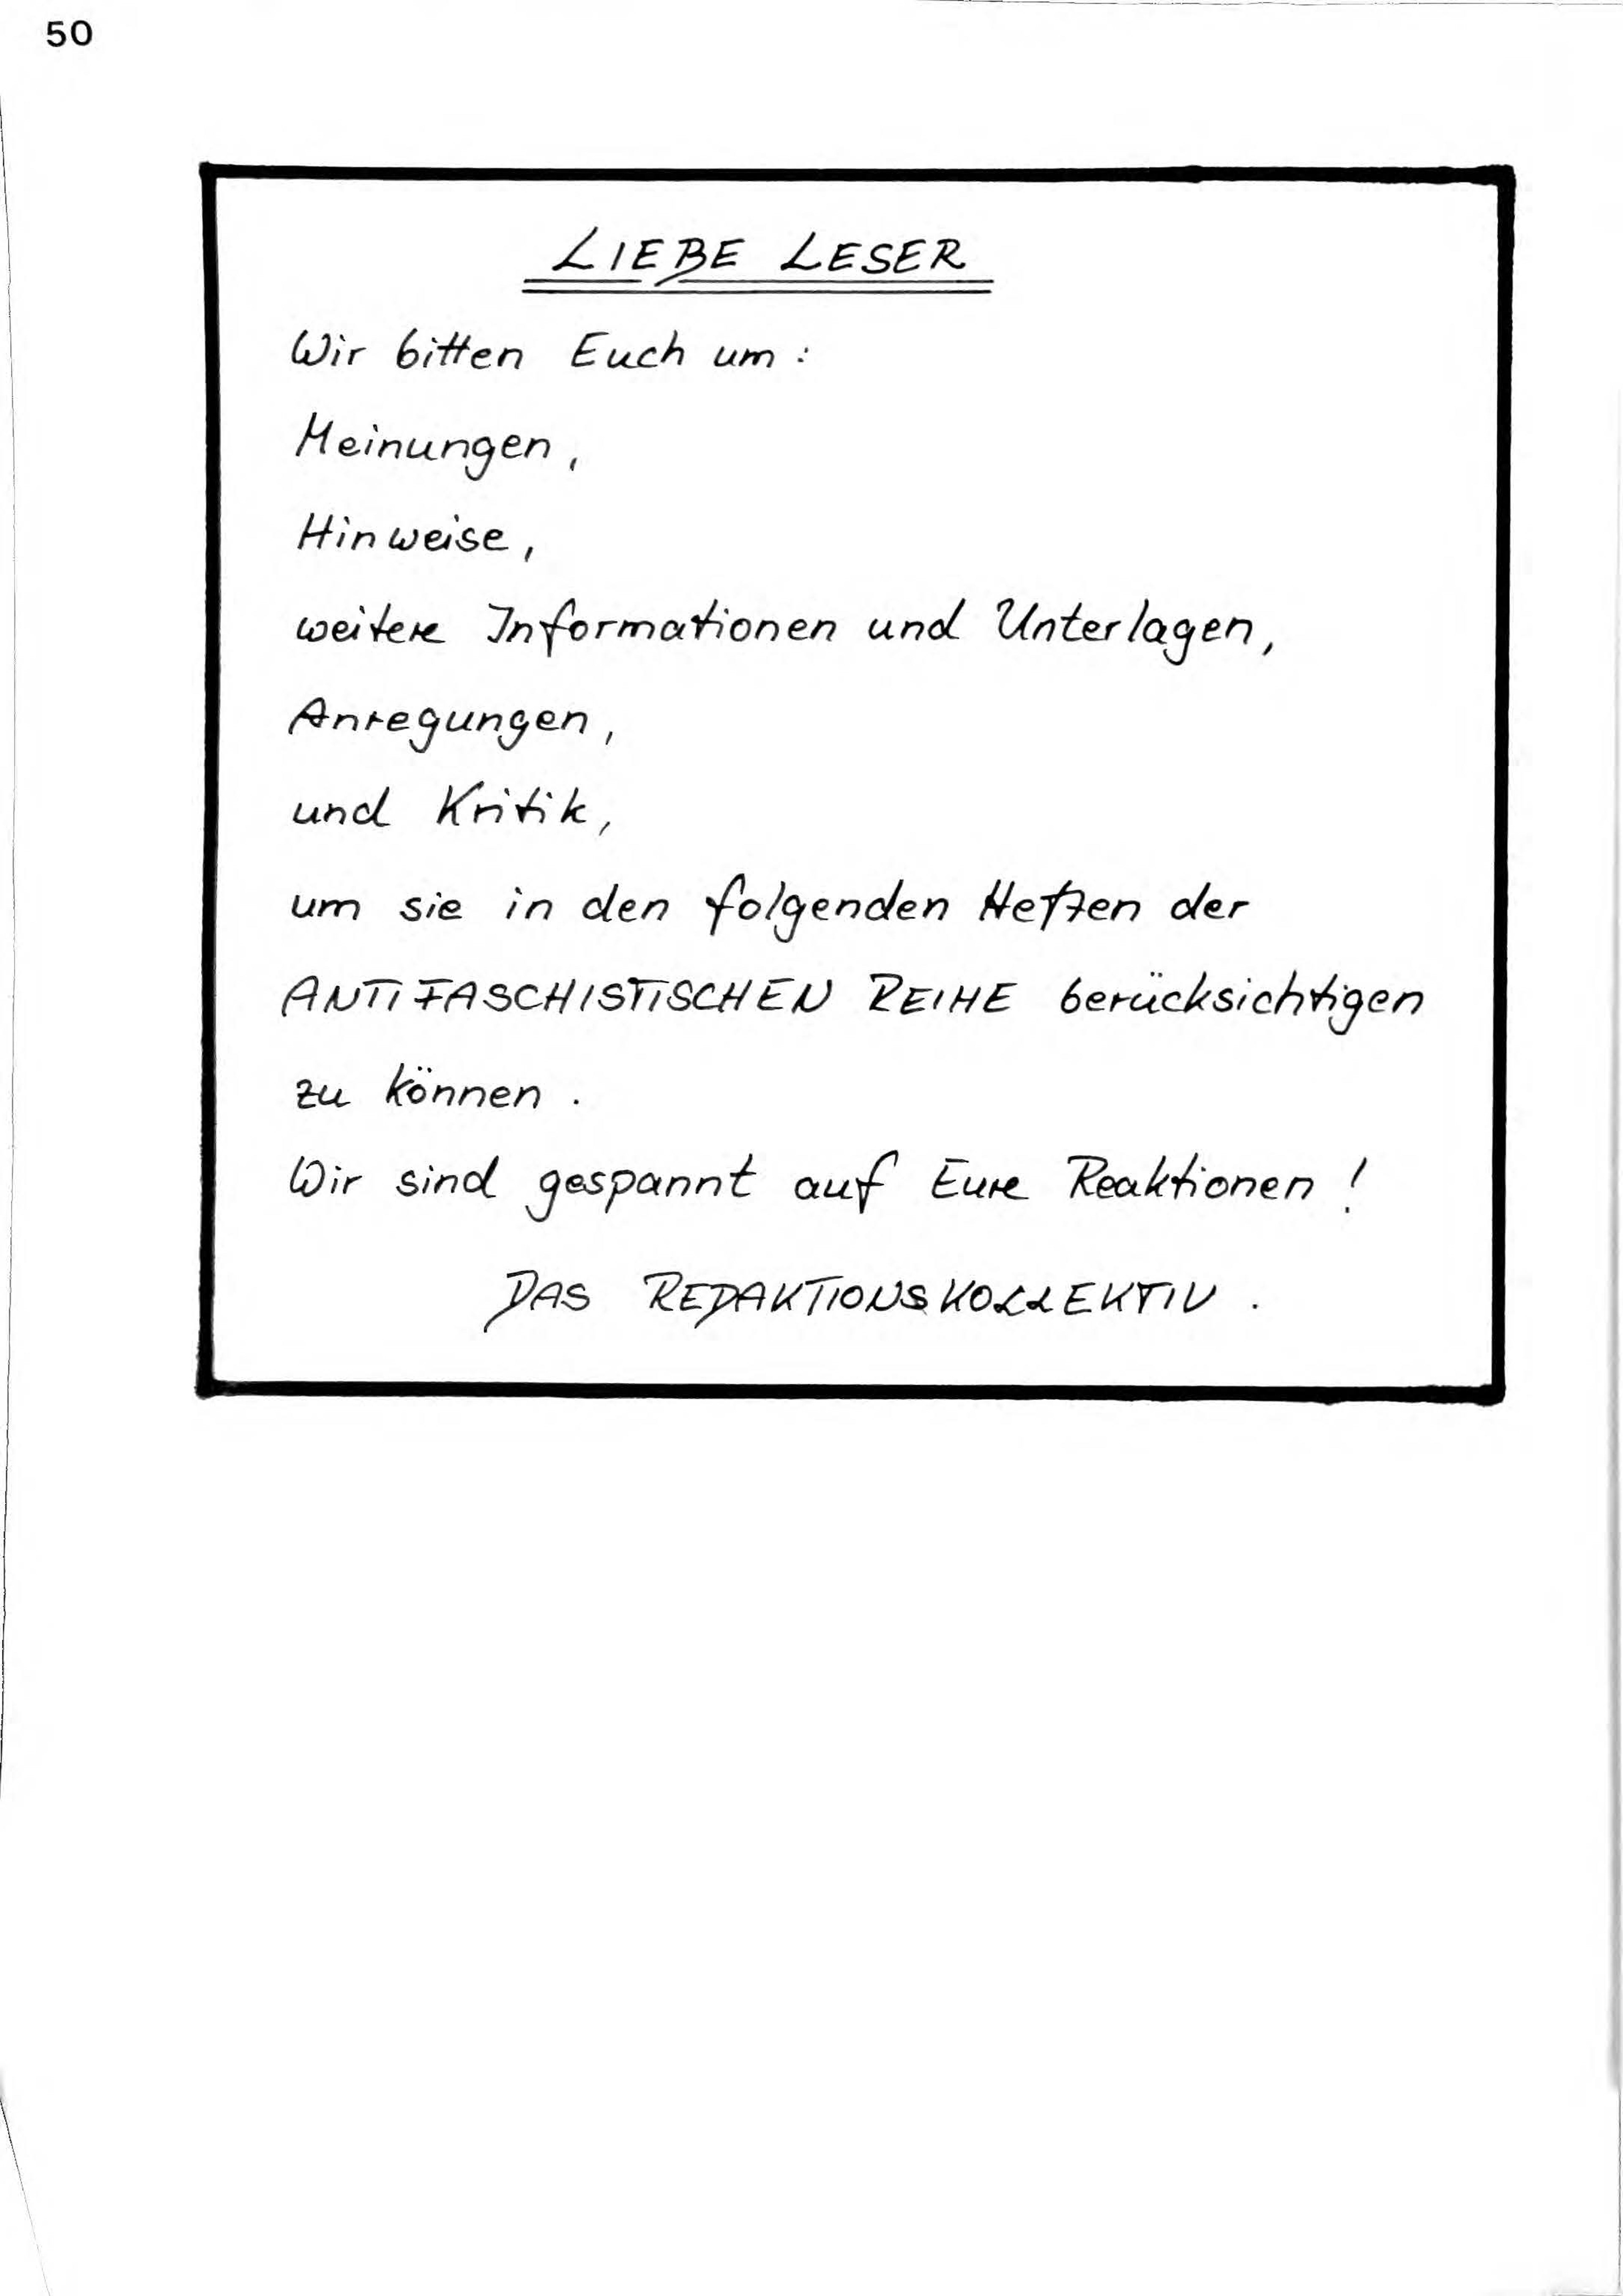 50
LIEBE LESER
Wir bitten Euch um :
Meinungen,
Hinweise,
weitere Informationen und Unterlagen,
Anregungen,
und Kritik,
um sie in den folgenden Heften der
ANTIFASCHISTISCHEN REIHE berücksichtigen
zu können .
Wir sind gespannt auf Eure Reaktionen !
DAS REDAKTIONSKOLLEKTIV .